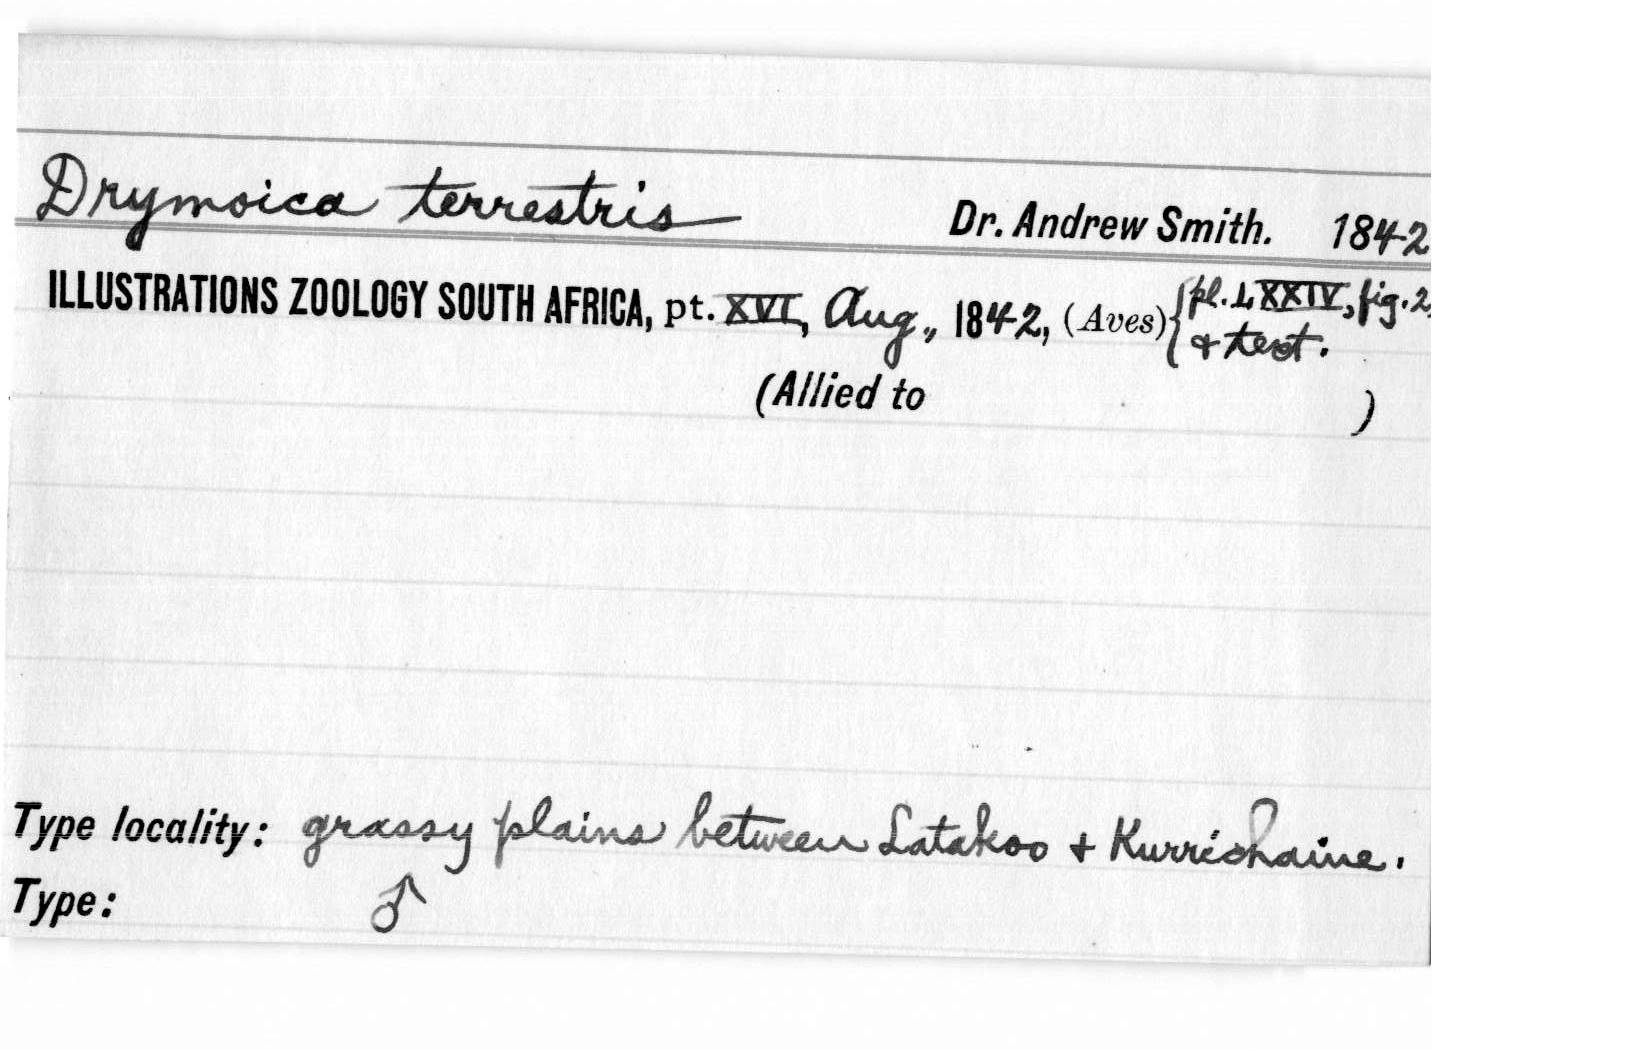 Drymoica terrestris Dr. Andrew Smith. 1842
ILLUSTRATIONS ZOOLOGY SOUTH AFRICA, pt. XVI, Aug., 1842, (Aves) { pl. LXXIV, fig. 2,
& text.
(Allied to )
Type locality: grassy plains between Latakoo + Kurrichaine.
Type: ♂